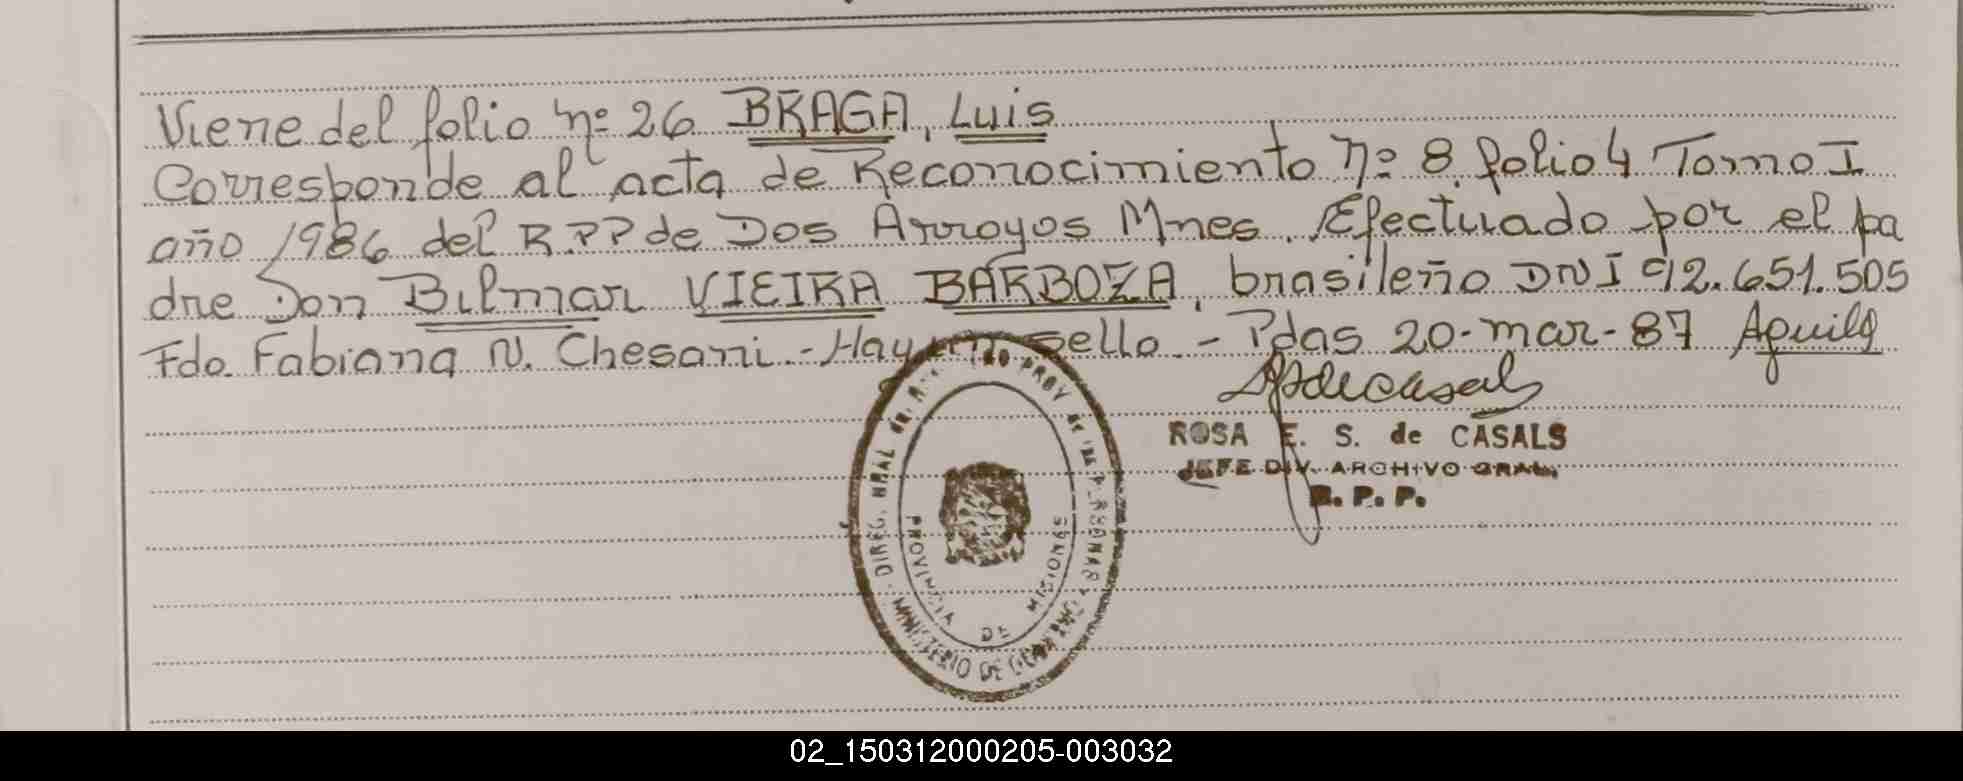 Viene del folio nº 26 BRAGA, Luis
Corresponde al acta de Reconocimiento nº 8 folio 4 Tomo I
año 1986 del R.P.P de Dos Arroyos Mnes. Efectuado por el pa
dre Don Bilmar VIEIRA BARBOZA, brasileño DNI 92.651.505
Fdo. Fabiana N. Chesani.- Hay un sello.- Pdas 20-mar-87 Aguila
ROSA E. S. de CASALS
JEFE DIV. ARCHIVO GRAL.
R. P. P.
DIREG. GRAL de PROV de PERSONAS
PROVINCIA DE MISIONES
MINISTERIO DE
02_150312000205-003032